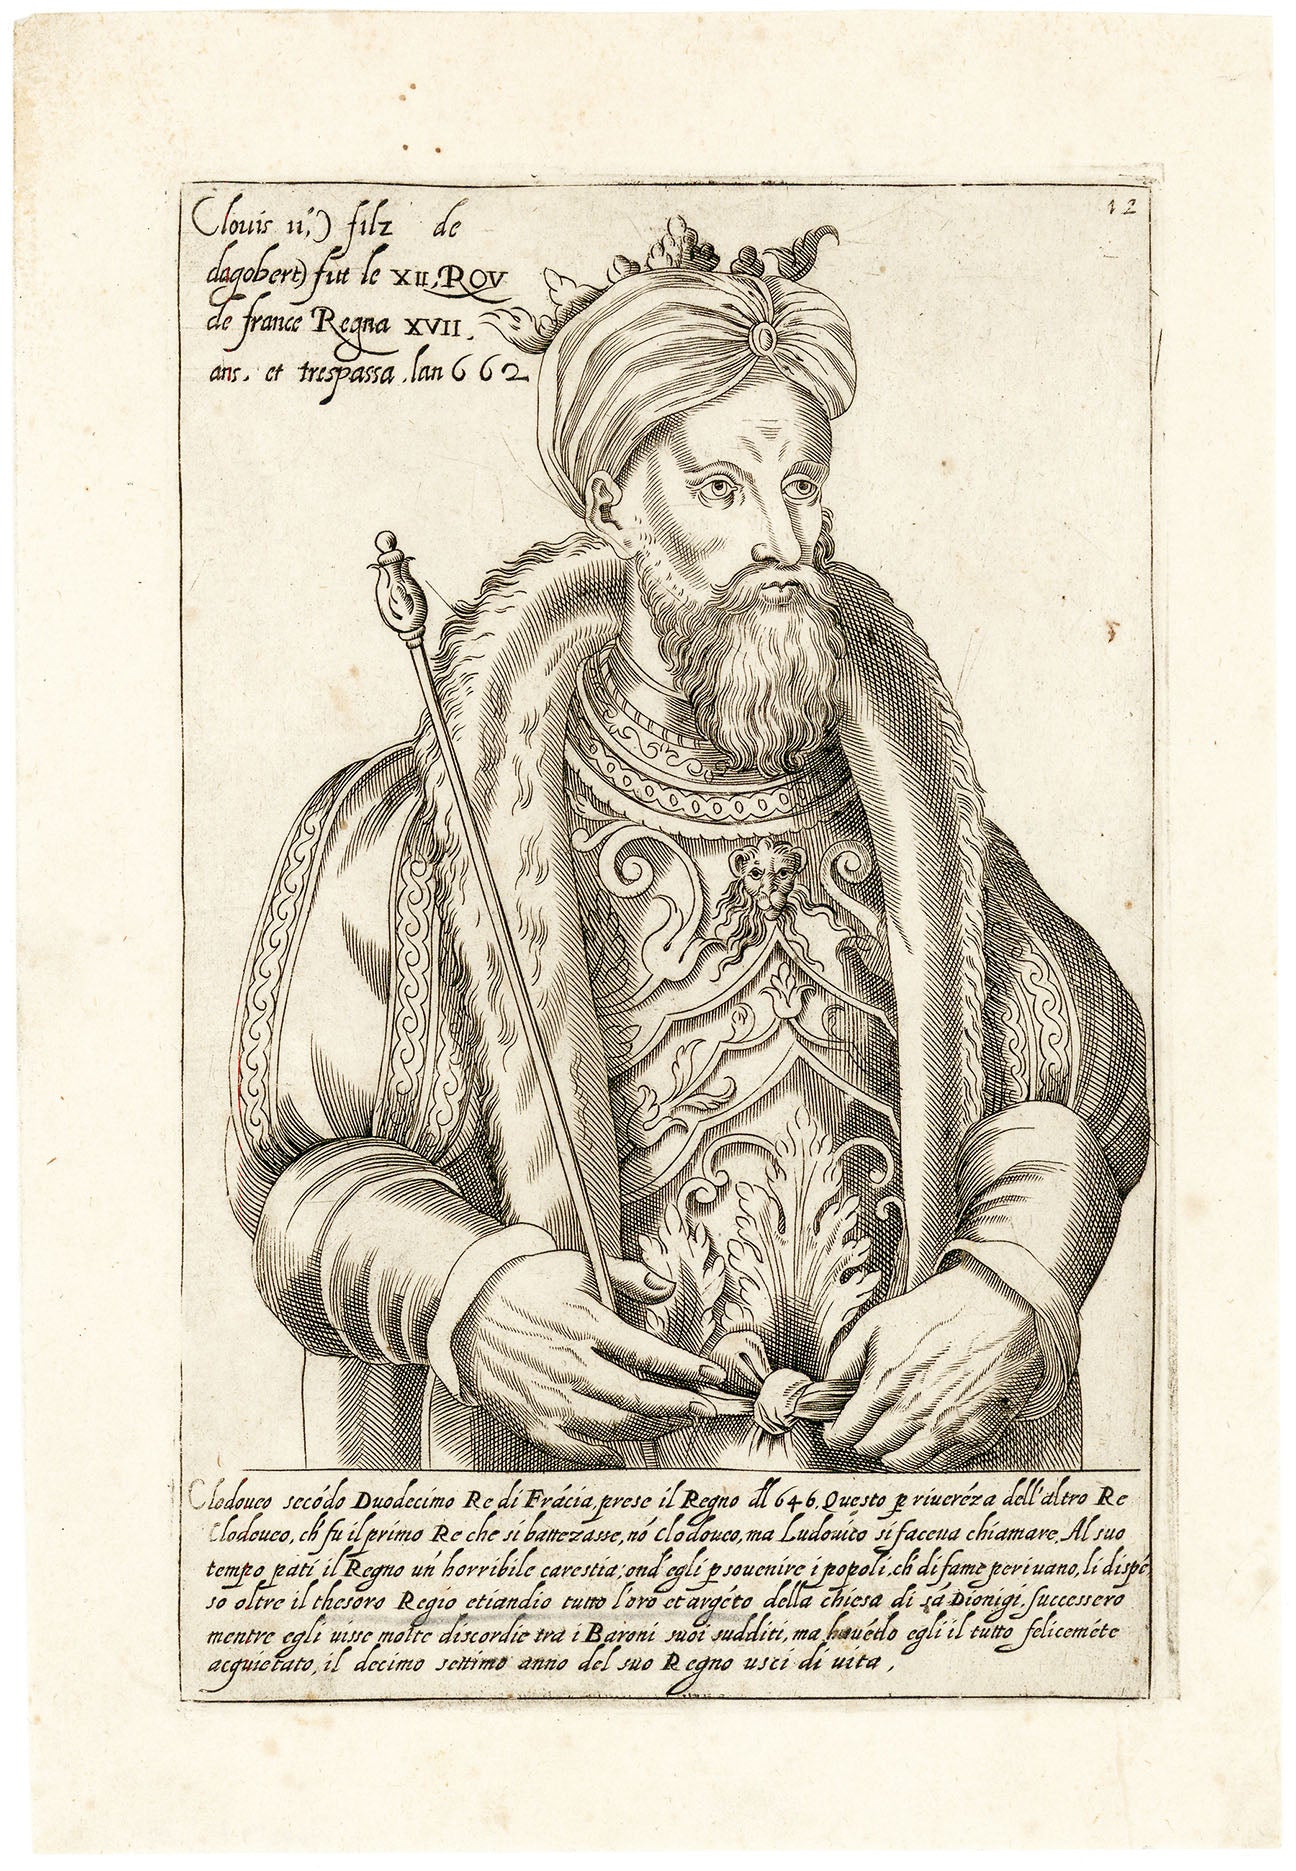 12
Clouis 11,) filz de
dagobert) fut le XII, ROY
de france Regna XVII.
ans, et trespassa lan 662
Clodoueo secódo Duodecimo Re di Frácia, prese il Regno dl 646. Questo p riueréza dell'altro Re
Clodoueo, ch' fu il primo Re che si battezasse, nó clodoueo, ma Ludouico si faceua chiamare. Al suo
tempo pati il Regno un' horribile carestia, ond' egli p souenire i popoli, ch' di fame periuano, li dispé
so oltre il thesoro Regio etiandio tutto l'oro et argéto della chiesa di sá Dionigi. successero
mentre egli uisse molte discordie tra i Baroni suoi sudditi, ma hauédo egli il tutto feliceméte
acquietato, il decimo settimo anno del suo Regno usci di uita,